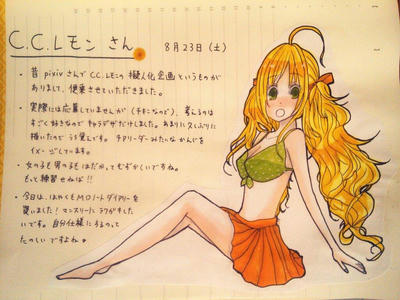 C.C.レモン さん
8月23日(土)
・昔pixivさんでC.C.レモンの擬人化企画というものが
ありまして、便乗させていただきました。
・実際には応募していませんが(チキンなので)、考えるのは
すごく好きなのでキャラデザだけしました。あまりに久しぶりに
描いたのでうろ覚えです。チアリーダーみたいなかんじを
イメージしてます。
・女の子も男の子もはだかってむずかしいですね。
もっと練習せねば!!
・今日は、はやくもMDノートダイアリーを
買いました!マンスリーにラクガキしたい
です。自分仕様にするのって
たのしいですよね。